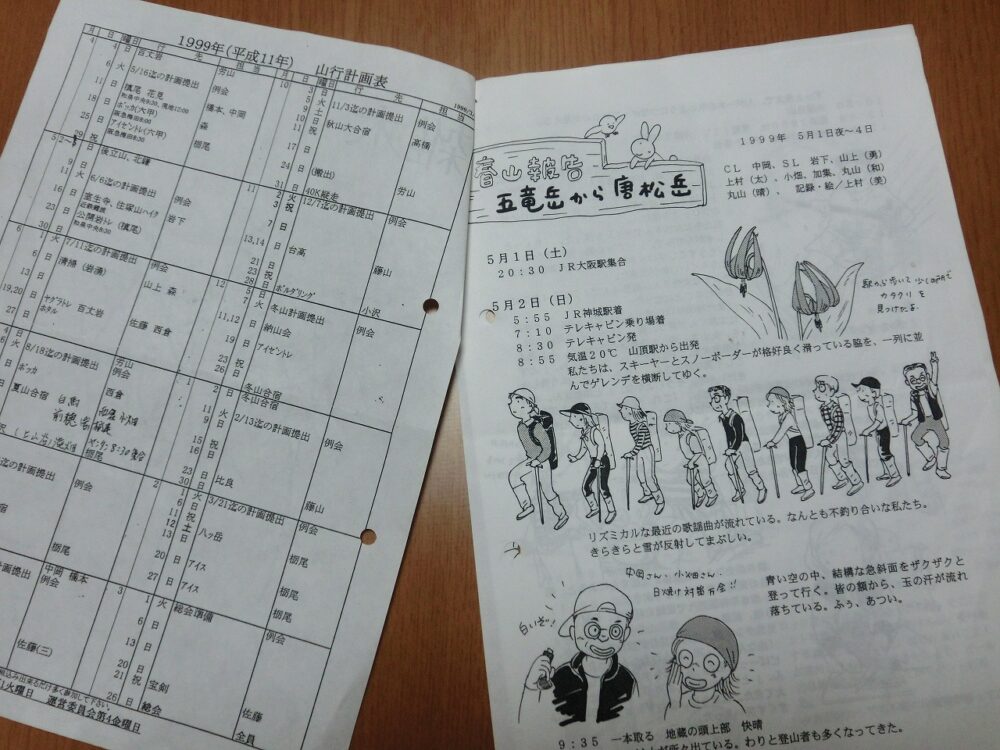 1999年(平成11年) 山行計画表
月 日 曜日 行 先 担 当 月 日 曜日 行 先 担 当
4 4 日 百丈岩 芳山
6 火 5/16迄の計画提出 例会
11 日 槇尾 花見 橋本、中岡
和泉中央9:30、現地12:00
18 日 ボッカ(六甲) 森
阪急梅田8:00
25 日 アイゼントレ(六甲) 栃尾
阪急梅田8:00
29 祝 後立山、北鎌
9 日
11 火 6/6迄の計画提出 例会
16 日 室生寺、住塚山ハイク 岩下
近鉄難波
23 日 公開岩トレ(槇尾)
和泉中央9:30
6 1 火 7/11迄の計画提出 例会
6 日 清掃(岩湧) 山上 森
13 日
19,20 日 ヤグラトレ 百丈岩 佐藤 西倉
27 日 ホタル
火 8/18迄の計画提出 例会
日 ボッカ 西倉
日 夏山合宿
迄の計画提出 例会
栃尾
計画提出 例会
中岡 橋本
佐藤(三)
10 3 日
5 火 11/3迄の計画提出 例会
9 土 秋山大合宿 高橋
10 日
11 祝
17 日
24 日 (搬出)
31 日 40K縦走 芳山
11 2 火 12/7迄の計画提出 例会
3 祝
7 日
13,14 日 台高 藤山
21 日
23 祝
28 日 ボルダリング 小沢
12 5 日
7 火 冬山計画提出 例会
11,12 日 納山会
19 日 アイゼントレ
26 日
冬山合宿
1 1 日 冬山合宿
2 日
11 火 2/13迄の計画提出 例会
9 日
15 祝
16 日
23 日 比良
30 日 藤山
2 1 火 3/21迄の計画提出 例会
6 日
11 祝
12 土 八ッ岳 栃尾
13 日
20 日 アイス 栃尾
27 日 アイス 栃尾
3 1 火 総会準備 例会
6 日
13 日
20 日
21 祝 宝剣 佐藤
26 日 総会 全員
火曜日 運営委員会第4金曜日
春山報告
五竜岳から唐松岳
1999年 5月1日夜~4日
CL 中岡、SL 岩下、山上(勇)
上村(太)、小畑、加集、丸山(和)
丸山(晴)、 記録・絵/上村(美)
5月1日(土)
20:30 JR大阪駅集合
駅から歩いて少しの所で
カタクリを
見つけたよ。
5月2日(日)
5:55 JR神城駅着
7:10 テレキャビン乗り場着
8:30 テレキャビン発
8:55 気温20℃ 山頂駅から出発
私たちは、スキーヤーとスノーボーダーが格好良く滑っている脇を、一列に並
んでゲレンデを横断してゆく。
リズミカルな最近の歌謡曲が流れている。なんとも不釣り合いな私たち。
きらきらと雪が反射してまぶしい。
中岡さん、小畑さん、
日焼け対策万全!!
白いぞ!
青い空の中、結構な急斜面をザクザクと
登って行く。皆の額から、玉の汗が流れ
落ちている。ふぅ、あつい。
9:35 一本取る 地蔵の頭上部 快晴
出ている。わりと登山者も多くなってきた。